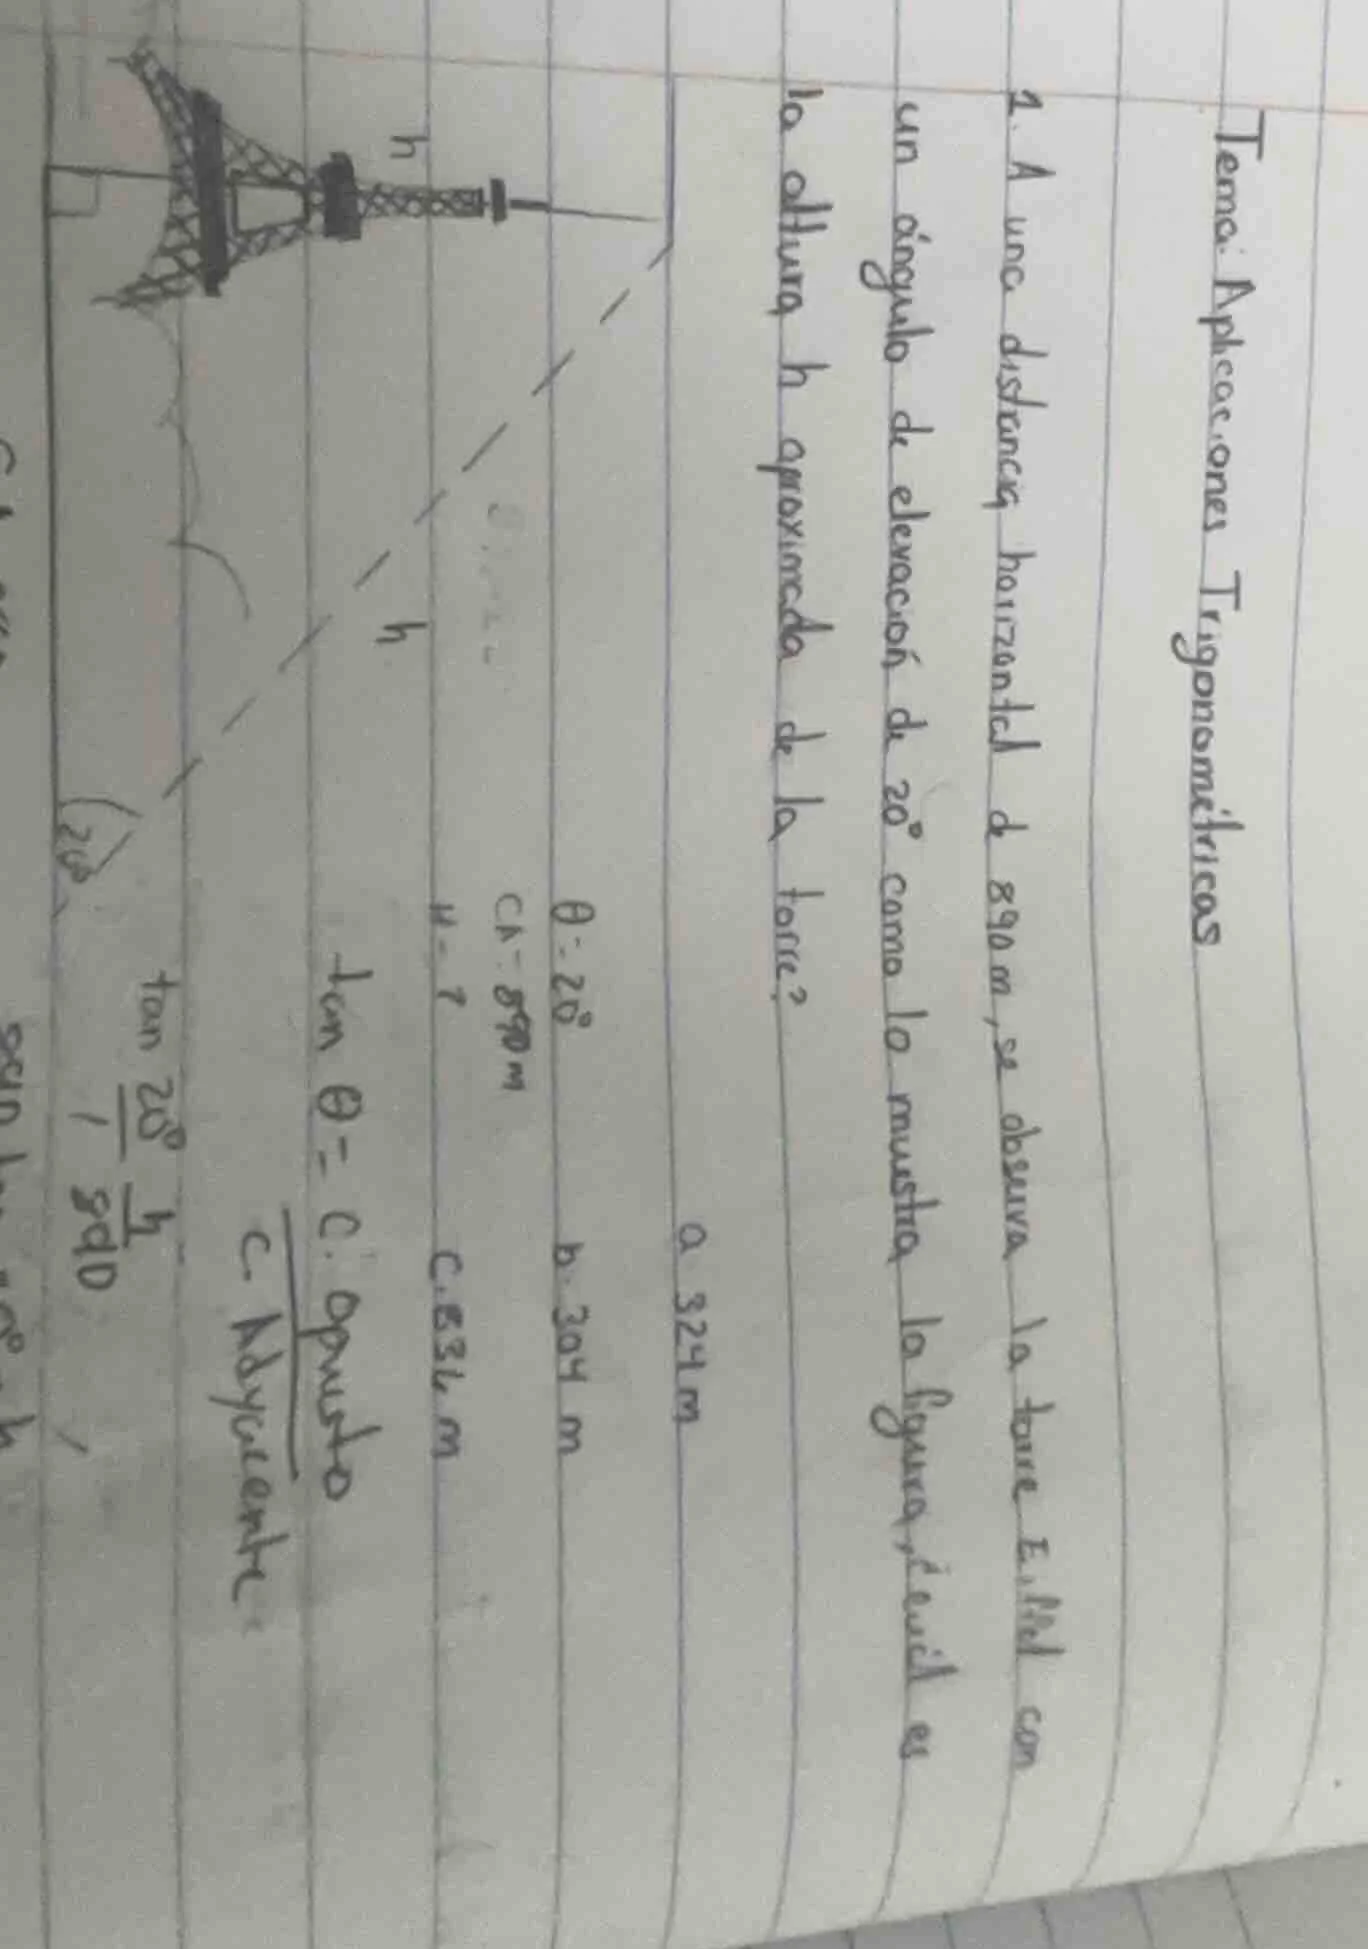 Tema: Aplicaciones Trigonométricas
1. A una distancia horizontal d 890 m, se observa la torre Eiffel con
un ángulo de elevación de 20° como lo muestra la figura, ¿cuál es
la altura h aproximada de la torre?
a. 324 m
θ = 20°
b. 304 m
CA = 890 m
H = ?
C. 836 m
h
h
tan θ = C. opuesto
C. Adyacente
tan 20° h
1 890
20°